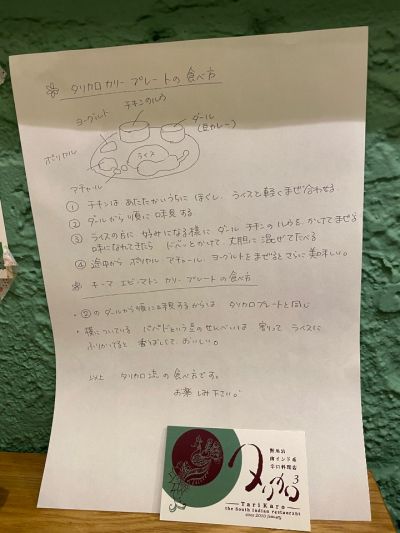 ※ タリカロカリー プレートの食べ方
チキンのルウ
ヨーグルト
ダール
(豆カレー)
ポリヤル
ライス
アチャール
① チキンは あたたかいうちに ほぐし、ライスと軽くまぜ合わせる。
② ダールから順に味見する
③ ライスの方に 好みになる様に、ダール チキンのルウを かけてまぜる
味になれてきたら ドバッとかけて、大胆に混ぜてたべる
④ 途中から ポリヤル アチャール、ヨーグルトをまぜるとさらに美味しい。
※ キーマ エビ・マトン カリー プレートの食べ方
・②の ダールから順に味見するからは タリカロプレートと同じ
・横についている パパドという豆のせんべいは 割って ライスに
ふりかけると 香ばしくて、おいしい。
以上 タリカロ流の食べ方です。
お楽しみ下さい。
南インド系
辛口料理店
タリカロ
3
TariKaro
the South Indian restaurant